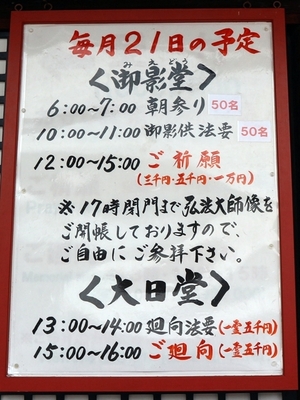 毎月21日の予定
<御影堂>
みえどう
6:00~7:00 朝参り 50名
10:00~11:00 御影供法要 50名
12:00~15:00 ご祈願
(三千円・五千円・一万円)
※17時閉門まで弘法大師像を
ご開帳しておりますので、
ご自由にご参拝下さい。
<大日堂>
13:00~14:00 廻向法要(一霊五千円)
15:00~16:00 ご廻向(一霊五千円)